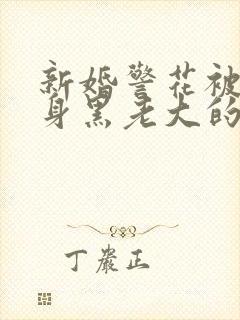 新婚警花被
身黑老大的
丁严正